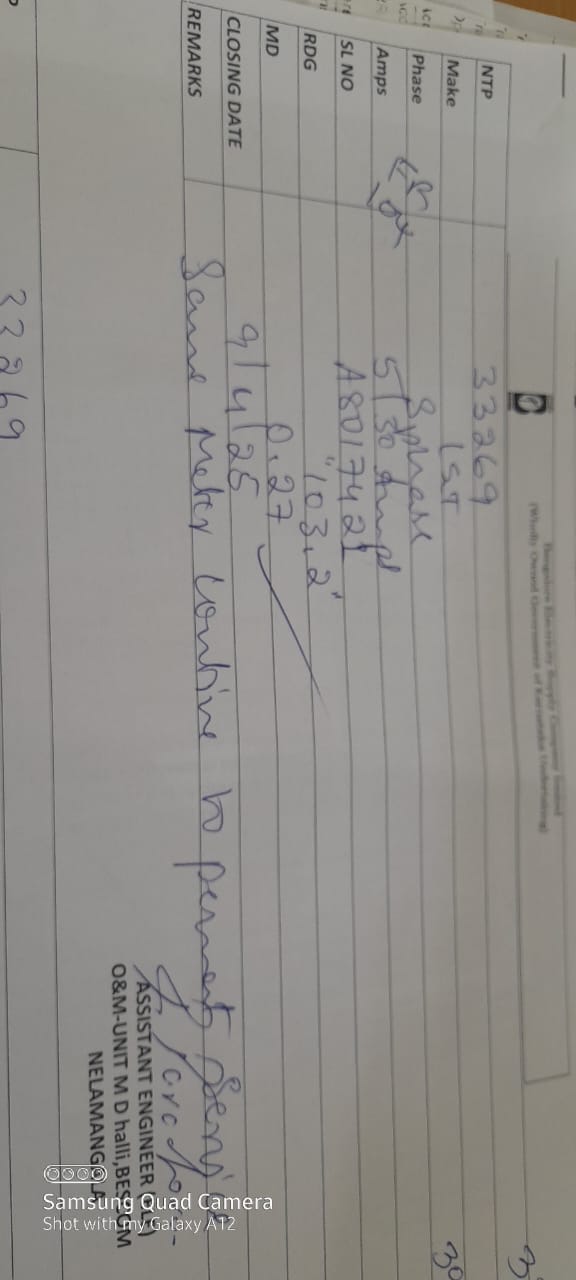 Bangalore Electricity Supply Company Limited
(Wholly Owned Government of Karnataka Undertaking)
NTP 33269
Make
Phase phase
Amps 5/30 Amps
SL NO A8017421
RDG "103.2"
MD 0.27
CLOSING DATE 9/4/25
REMARKS Same Meter Contine to perment Service
ASSISTANT ENGINEER
O&M-UNIT M D halli, BESCOM
NELAMANGALA
33269
Samsung Quad Camera
Shot with my Galaxy A12